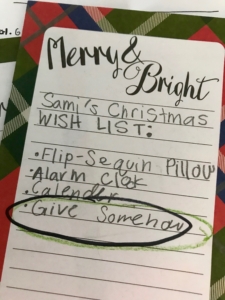 ol. 6
Merry &
Bright
Sami's Christmas
WISH LIST:
·Flip-Sequin Pillow
·Alarm Clok
·Calender
·Give Somehow